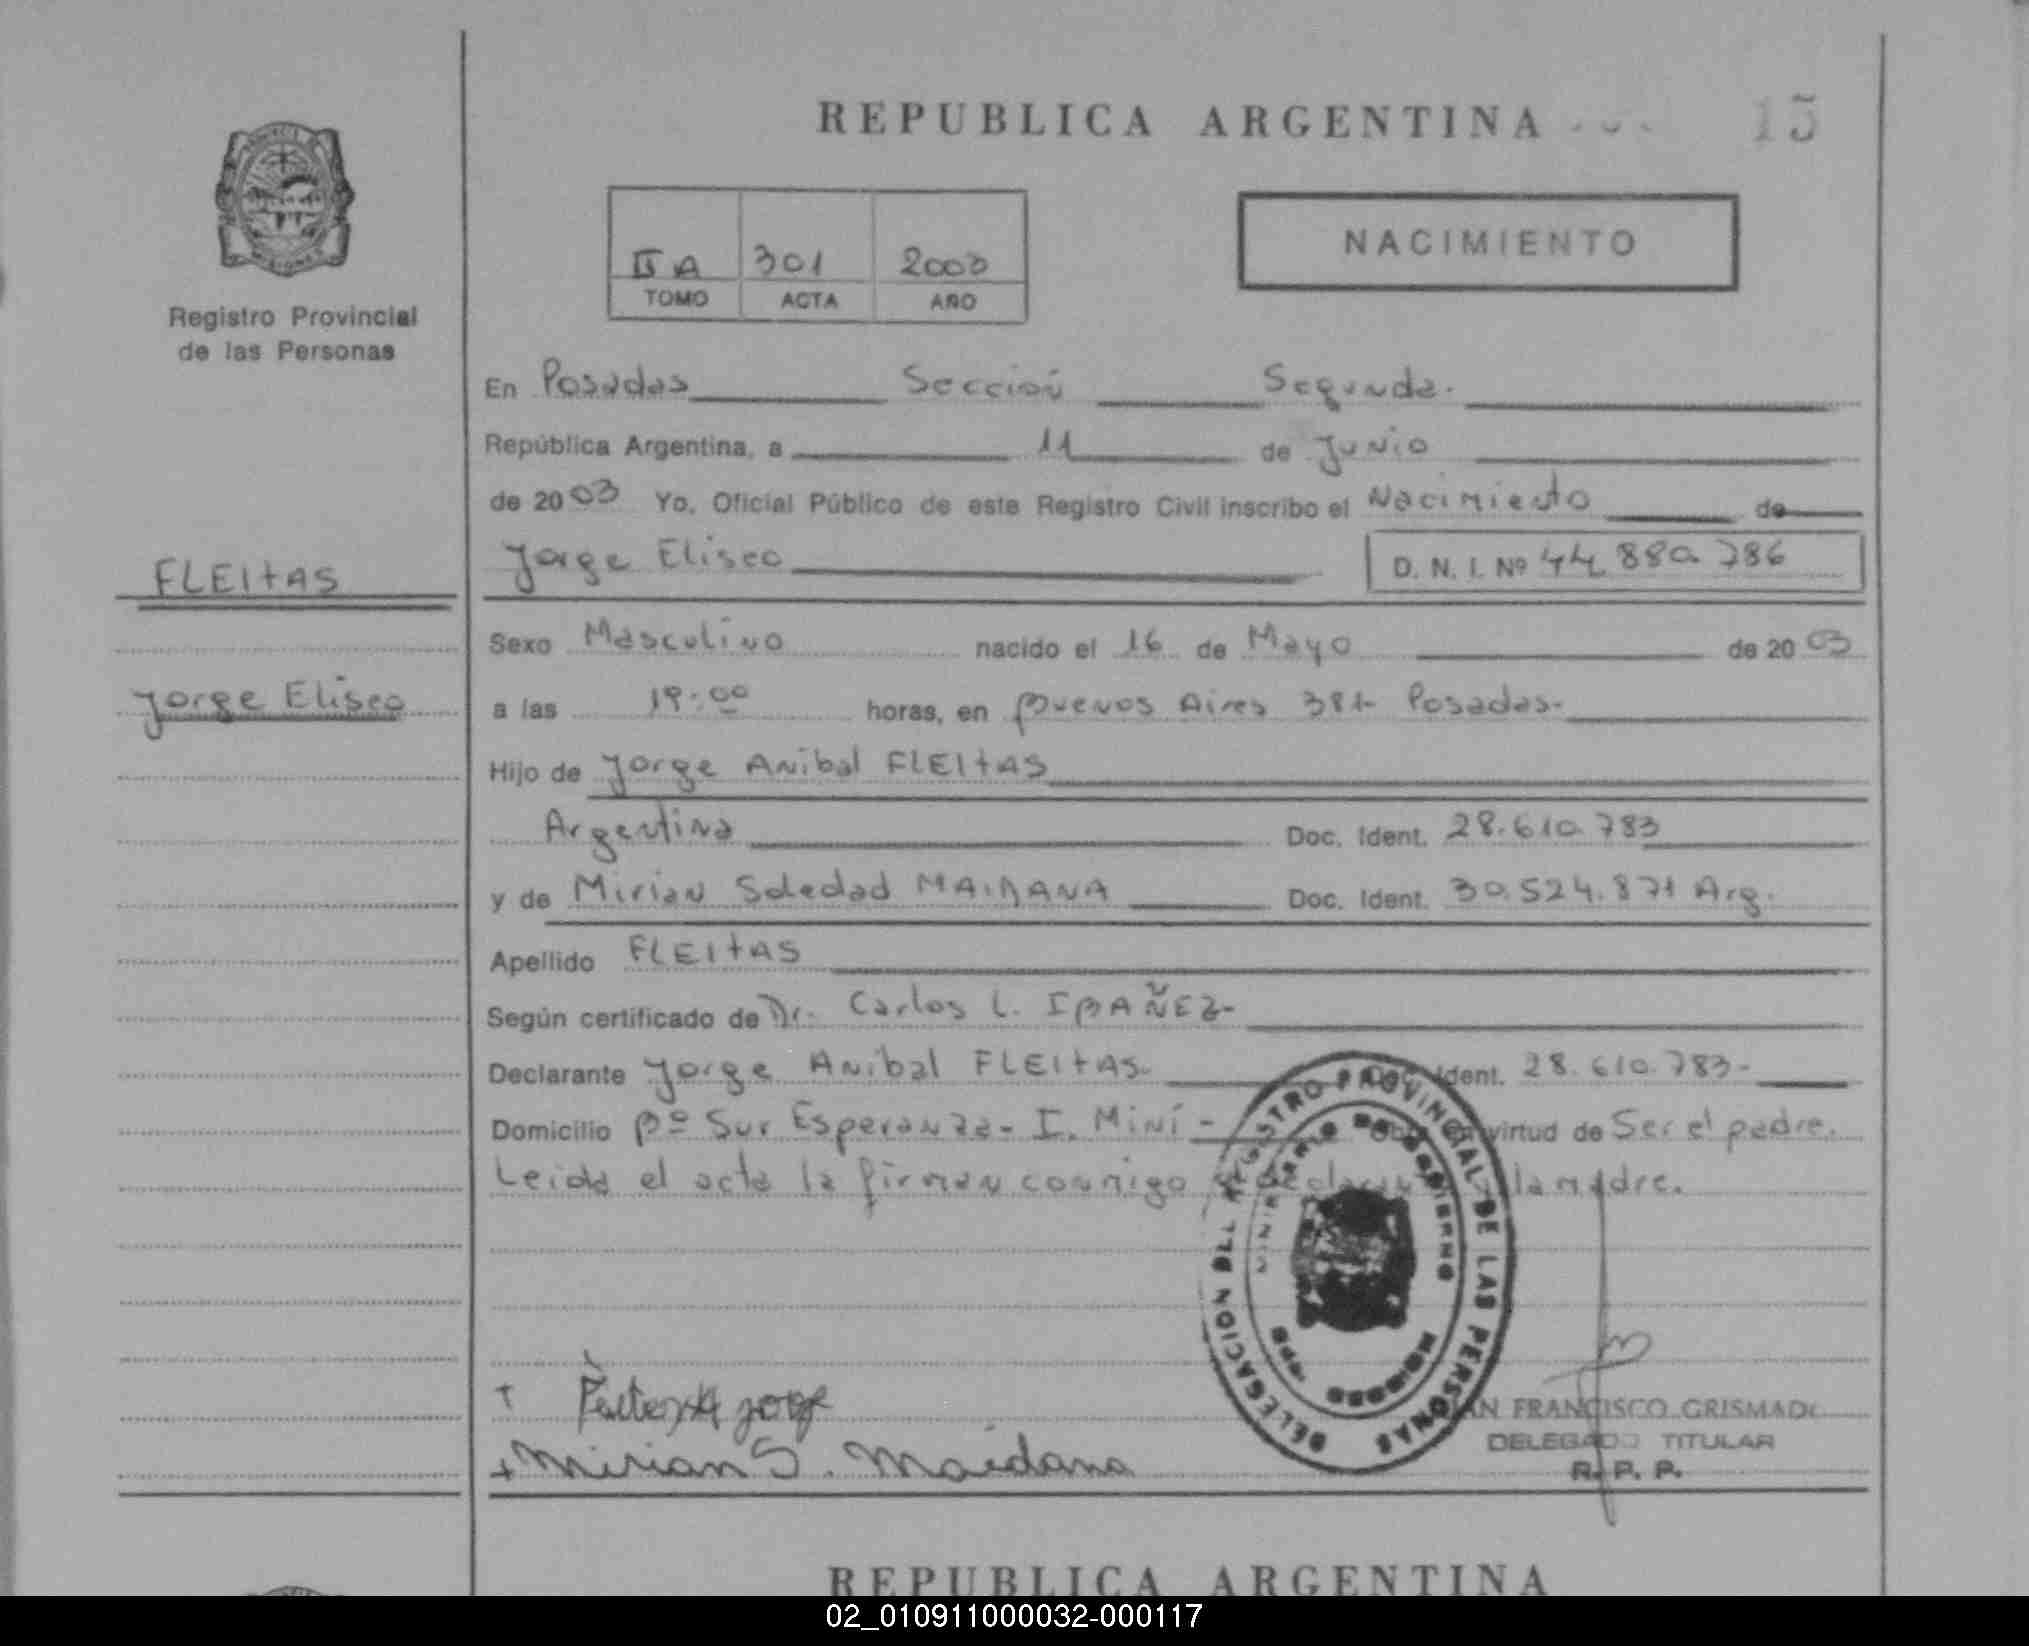 REPUBLICA ARGENTINA
15
Registro Provincial
de las Personas
II A 301 2003
TOMO ACTA AÑO
NACIMIENTO
En Posadas Sección Segunda.
República Argentina, a 11 de Junio
de 2003 Yo, Oficial Público de este Registro Civil inscribo el Nacimiento de
FLEITAS
Jorge Eliseo D. N. I. Nº 44.880.786
Sexo Masculino nacido el 16 de Mayo de 2003
Jorge Eliseo
a las 19:00 horas, en Buenos Aires 381- Posadas-
Hijo de Jorge Anibal FLEITAS
Argentina Doc. Ident. 28.610.783
y de Mirian Soledad MAIDANA Doc. Ident. 30.524.871 Arg.
Apellido FLEITAS
Según certificado de Dr. Carlos L. IBAÑEZ-
Declarante Jorge Anibal FLEITAS- Ident. 28.610.783-
Domicilio Bº Sur Esperanza- I. Miní- Obra en virtud de Ser el padre.
Leida el acta la firman conmigo la madre.
DELEGACION DEL REGISTRO PROVINCIAL DE LAS PERSONAS
MINISTERIO DE GOBIERNO
Mirian S. Maidana
FRANCISCO GRISMADO
DELEGADO TITULAR
R. P. P.
REPUBLICA ARGENTINA
02_010911000032-000117